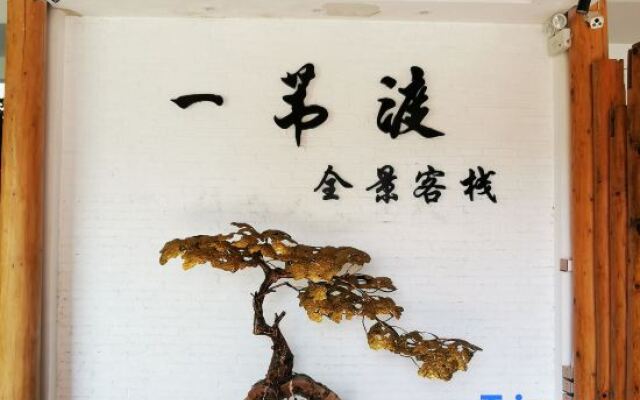 一苇渡
全景客栈